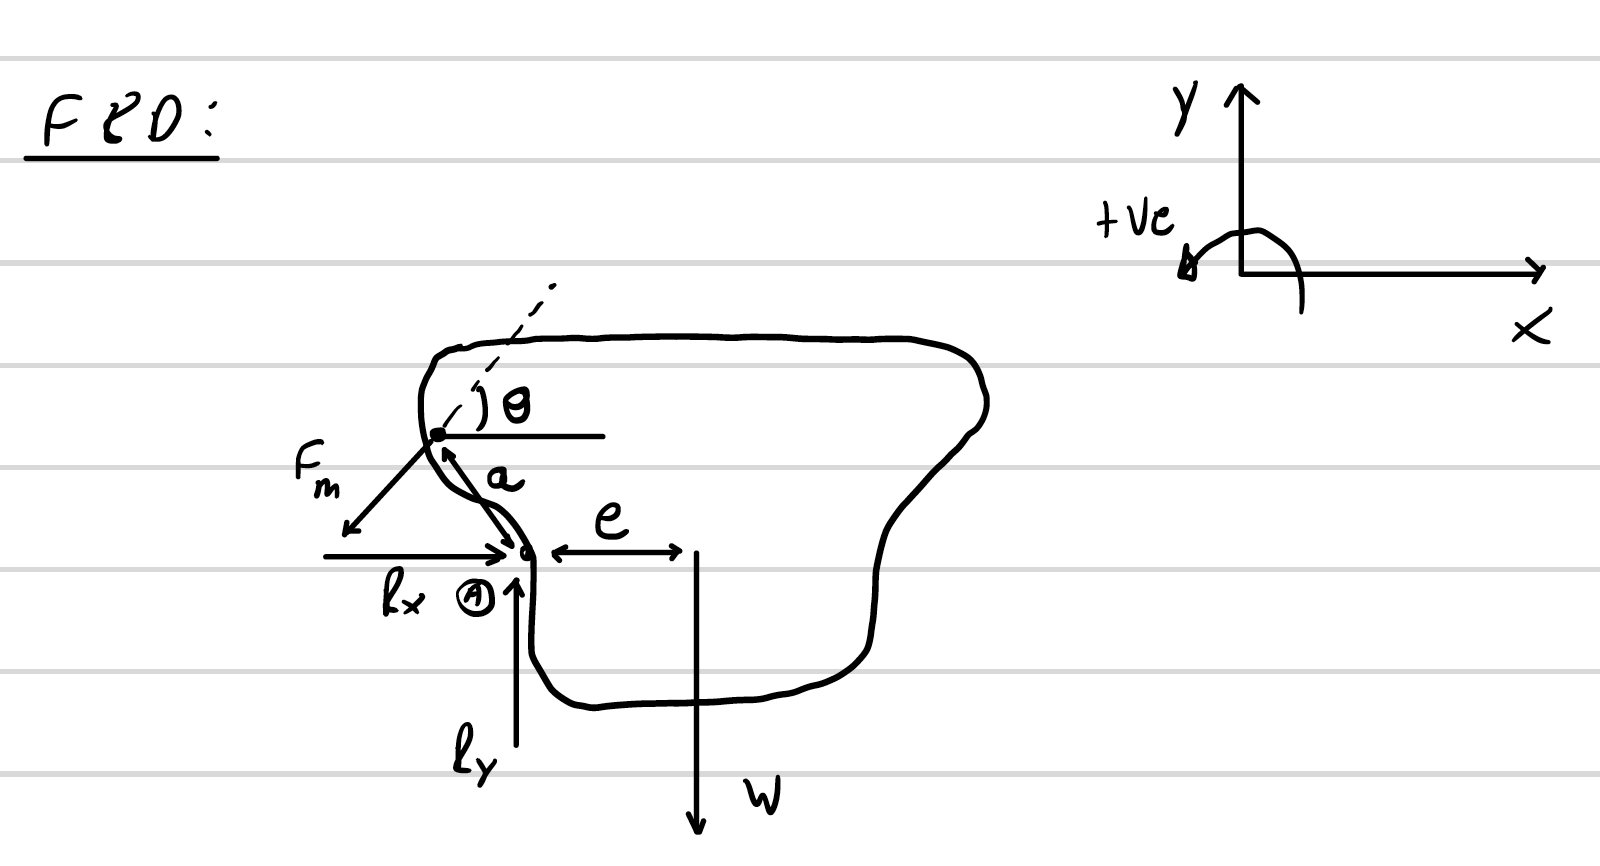 FBD:
y
+ve
x
θ
Fm
a
e
Rx
A
Ry
W